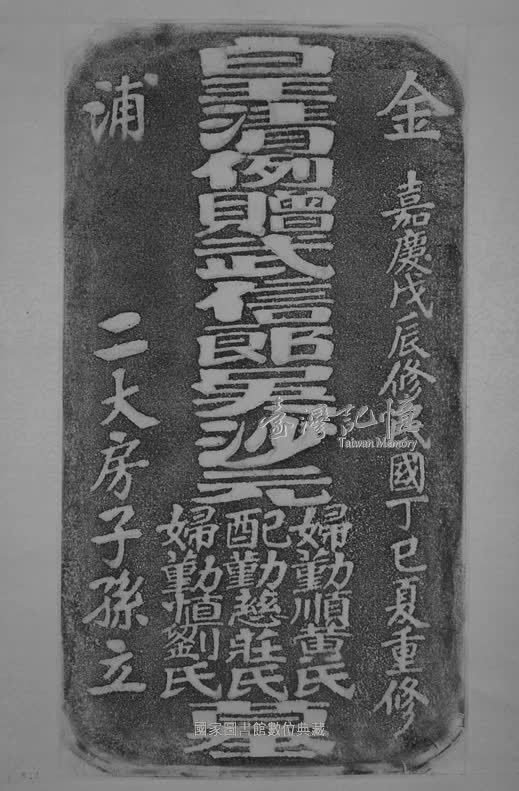 金
嘉慶戊辰修民國丁巳夏重修
皇清例贈武信郎吳沙元
婦勤順黃氏
配勤慈莊氏
婦勤劉氏
墓
浦
二大房子孫立
臺灣記憶
Taiwan Memory
國家圖書館數位典藏